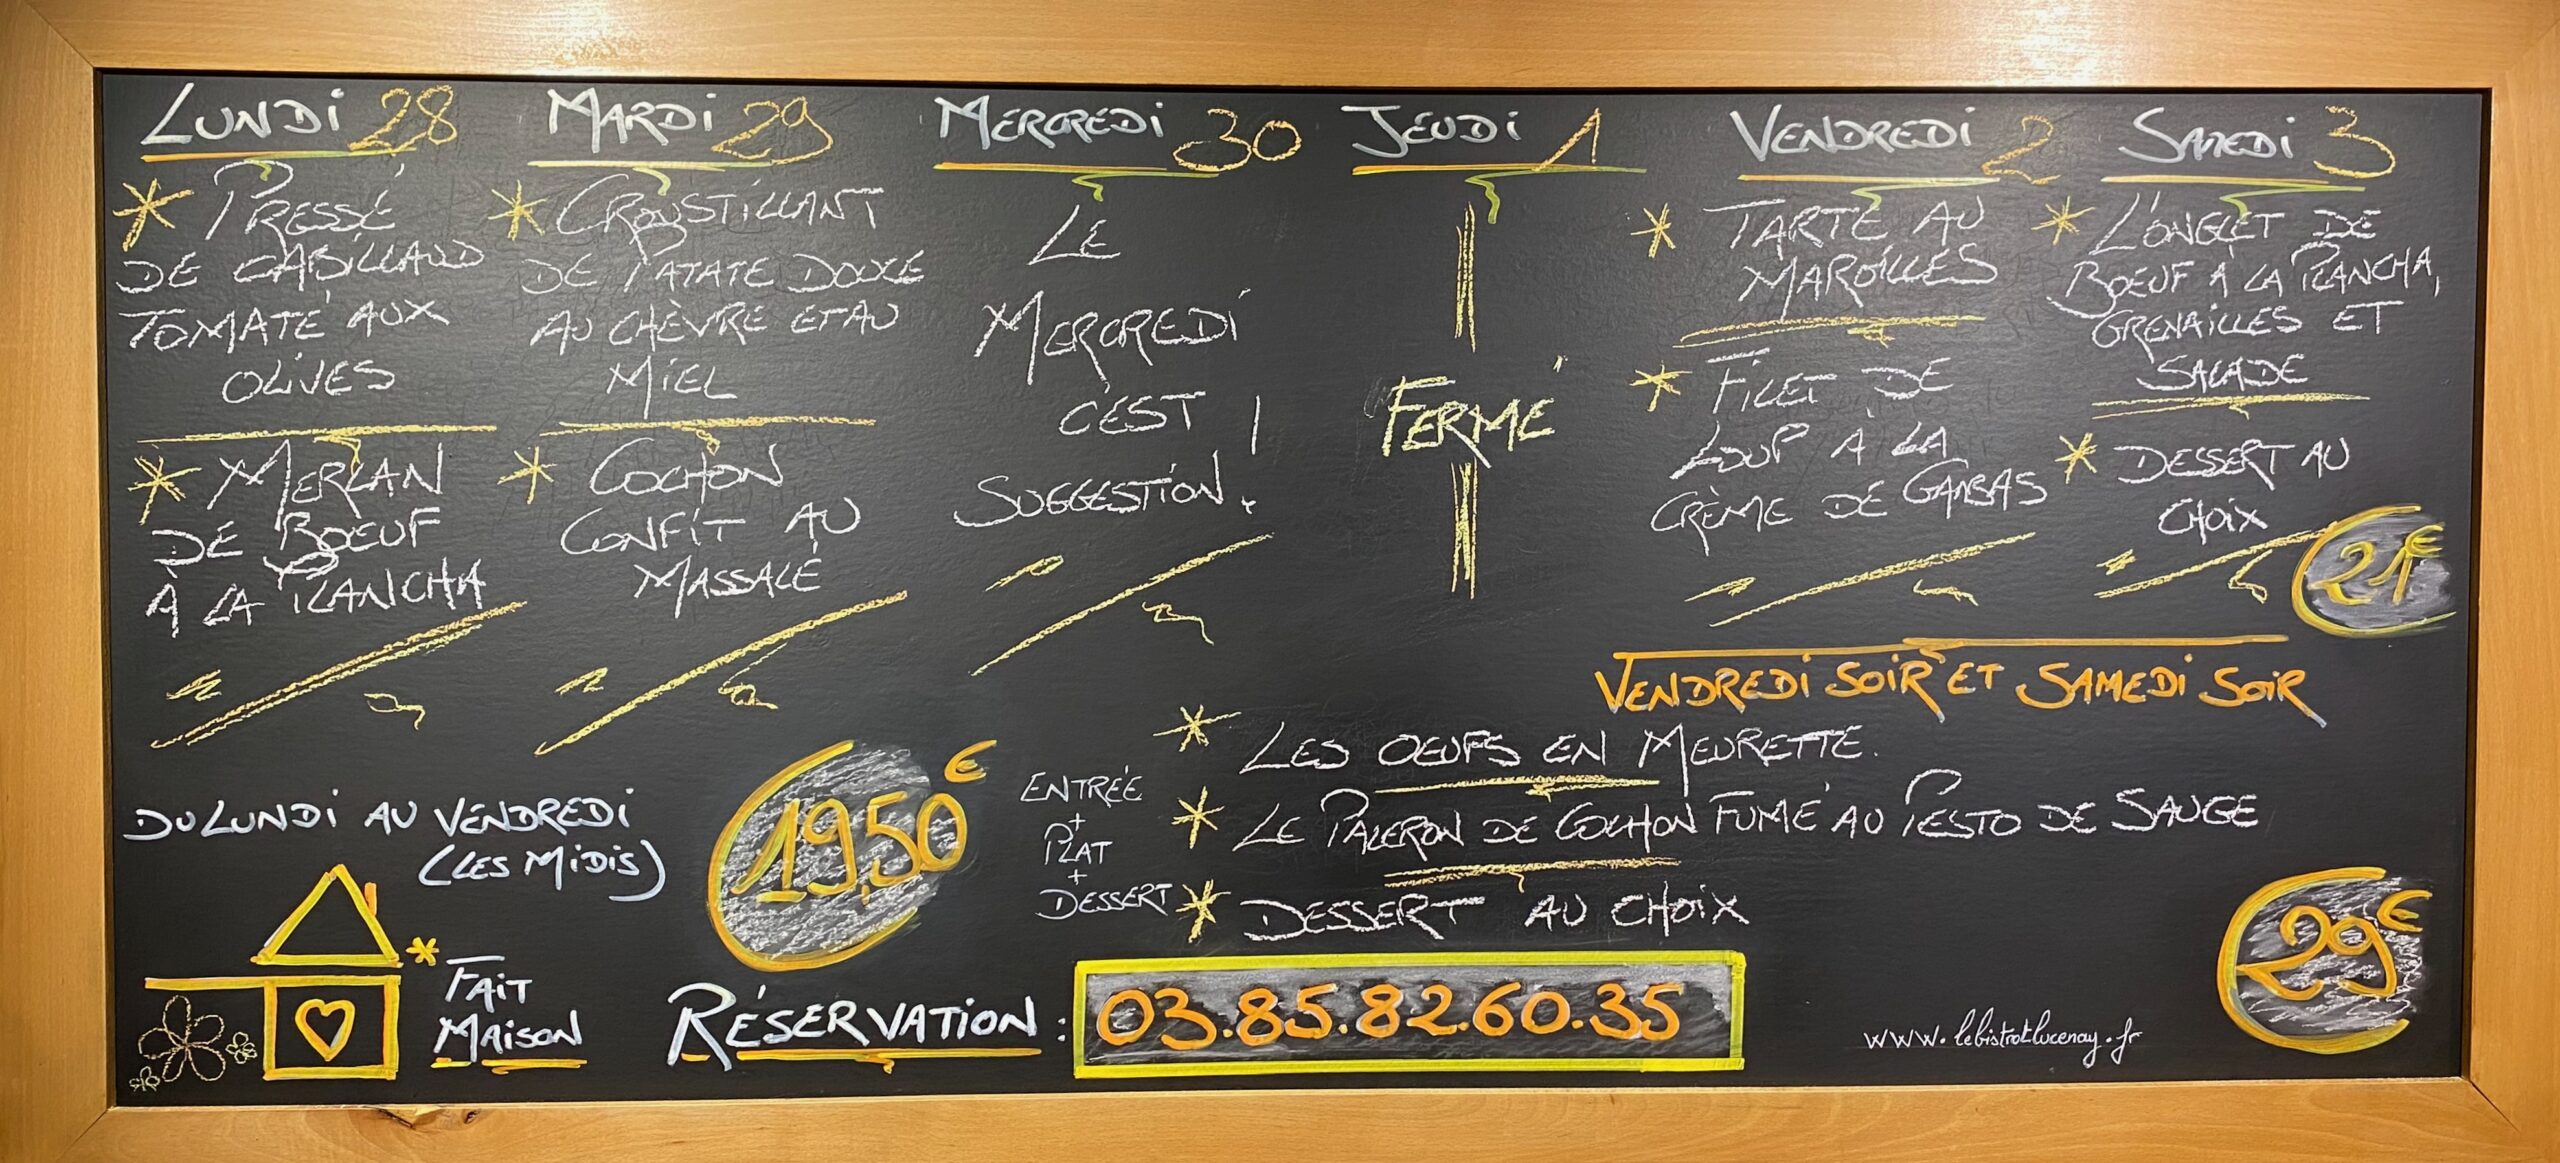 LUNDI 28
* PRESSÉ
DE CABILLAUD
TOMATE AUX
OLIVES
* MERLAN
DE BOEUF
À LA PLANCHA
MARDI 29
* CROUSTILLANT
DE PATATE DOUCE
AU CHÈVRE ET AU
MIEL
* COCHON
CONFIT AU
MASSALÉ
MERCREDI 30
LE
MERCREDI
C'EST
SUGGESTION !
JEUDI 1
FERMÉ
VENDREDI 2
* TARTE AU
MAROILLES
* FILET DE
LOUP À LA
CRÈME DE GAMBAS
SAMEDI 3
* L'ONGLET DE
BOEUF À LA PLANCHA,
GRENAILLES ET
SALADE
* DESSERT AU
CHOIX
21€
VENDREDI SOIR ET SAMEDI SOIR
* LES OEUFS EN MEURETTE.
* LE PALERON DE COCHON FUMÉ AU PESTO DE SAUGE
* DESSERT AU CHOIX
29€
DU LUNDI AU VENDREDI
(LES MIDIS)
19,50€
ENTRÉE
+
PLAT
+
DESSERT
* FAIT
MAISON
RÉSERVATION : 03.85.82.60.35
www.lebistrotlucenay.fr